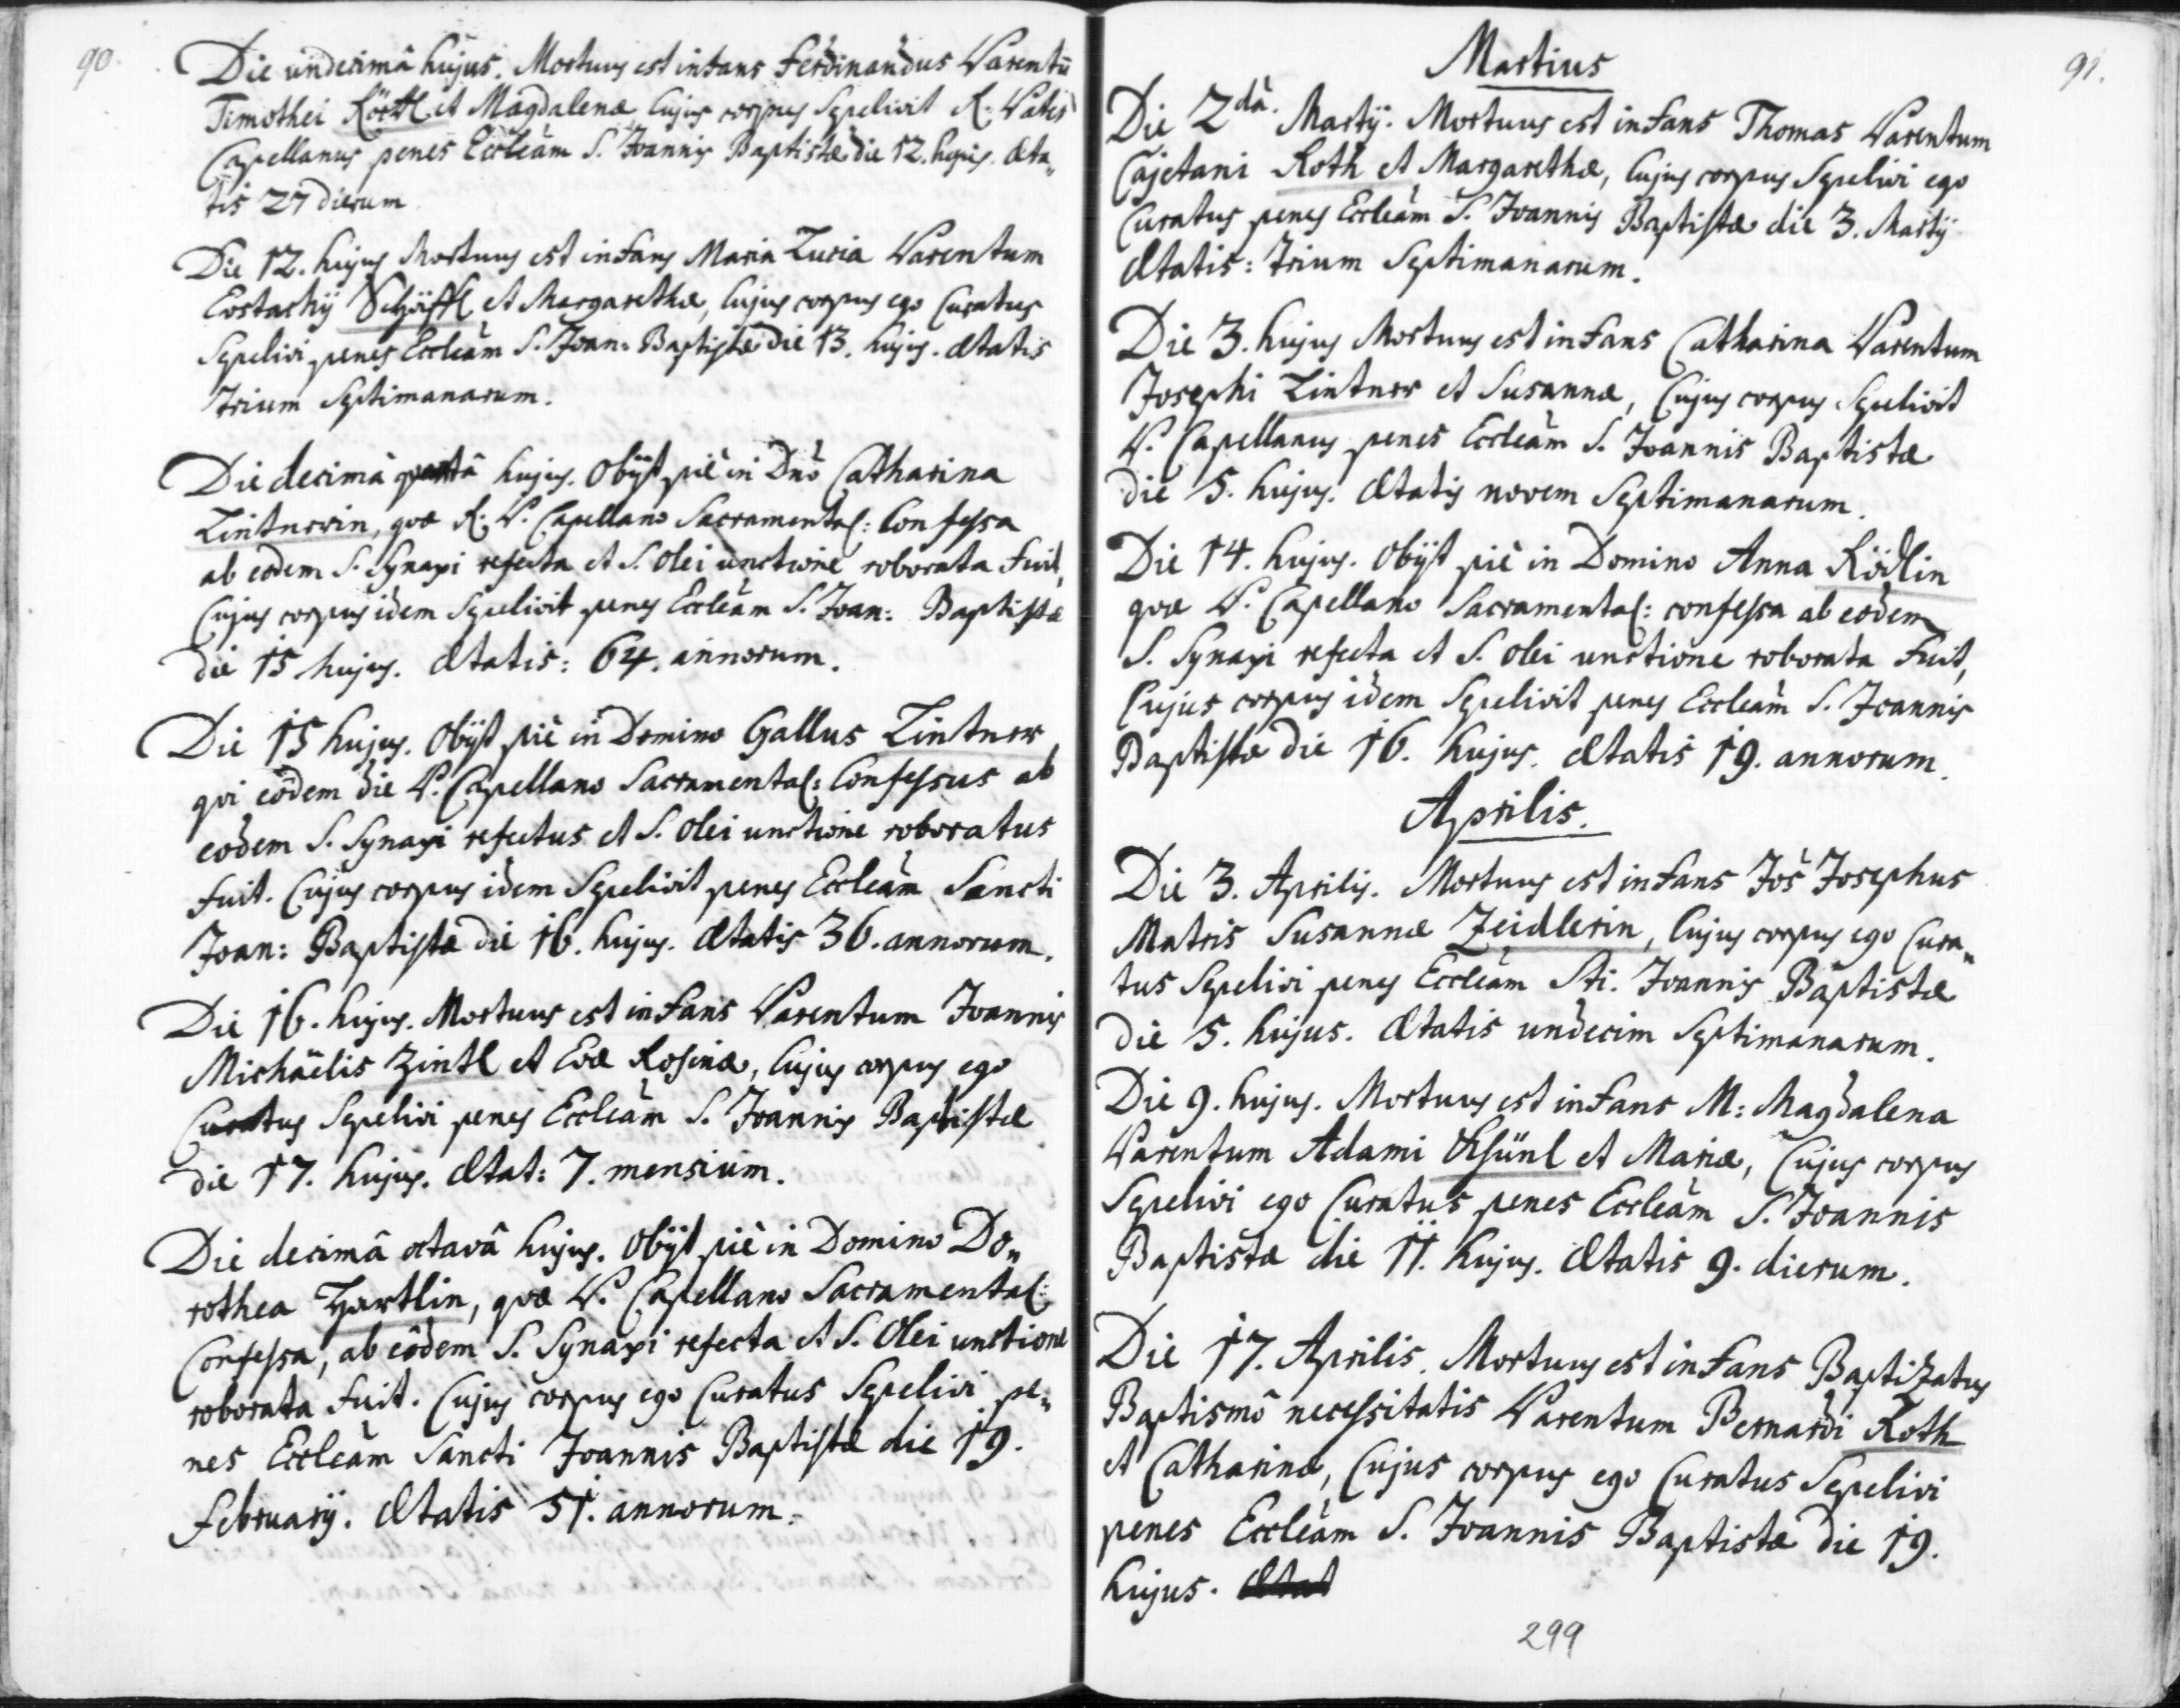 90.
Die undecimâ hujus. Mortuus est infans Ferdinandus Parentū
Timothei Röttl et Magdalenæ, Cujus corpus Sepelivit R: Pater
Capellanus penes Eccleàm S. Joannis Baptistæ die 12. hujus. Æta„
tis 27 dierum
Die 12. hujus Mortuus est infans Maria Lucia Parentum
Eostachÿ Schöffl et Margarethæ, Cujus corpus ego Curatus
Sepelivi penes Eccleàm S. Joan: Baptistæ die 13. hujus. Ætatis
trium Septimanarum.
Die decimâ hujus. Obÿt piè in Dnò Catharina
Lintnerin, quæ R: P. Capellano Sacramental: Confessa
ab eodem S. Synaxi refecta et S. Olei unctione roborata fuit,
Cujus corpus idem Sepelivit penes Eccleàm S. Joan: Baptistæ
die 15 hujus. Ætatis: 64. annorum.
Die 15 hujus. Obÿt piè in Domino Gallus Lintner
qui eôdem die P. Capellano Sacramental: Confessus ab
eodem S. Synaxi refectus et S. Olei unctione roboratus
fuit. Cujus corpus idem Sepelivit penes Eccleàm Sancti
Joan: Baptistæ die 16. hujus. Ætatis 36. annorum.
Die 16. hujus. Mortuus est infans Parentum Joannis
Michäelis Zintl et Evæ Rosinæ, Cujus corpus ego
Curatus Sepelivi penes Eccleàm S. Joannis Baptistæ
die 17. hujus. Ætat: 7. mensium.
Die decimâ octavâ hujus. Obÿt piè in Domino Do„
rothea Hartlin, quæ P. Capellano Sacramental:
Confessa, ab eôdem S. Synaxi refecta et S. Olei unctione
roborata fuit. Cujus corpus ego Curatus Sepelivi pe„
nes Eccleàm Sancti Joannis Baptistæ die 19.
Februarÿ. Ætatis 51. annorum.
91.
Martius
Die 2dâ. Martÿ. Mortuus est infans Thomas Parentum
Cajetani Roth et Margarethæ, Cujus corpus Sepelivi ego
Curatus penes Eccleàm S. Joannis Baptistæ die 3. Martÿ
Ætatis: trium Septimanarum.
Die 3. hujus Mortuus est infans Catharina Parentum
Josephi Lintner et Susannæ, Cujus corpus Sepelivit
P. Capellanus penes Eccleàm S. Joannis Baptistæ
die 5. hujus. Ætatis novem Septimanarum.
Die 14. hujus. Obÿt piè in Domino Anna Rödlin
quæ P. Capellano Sacramental: confessa ab eodem
S. Synaxi refecta et S. Olei unctione roborata fuit,
Cujus corpus idem Sepelivit penes Eccleàm S. Joannis
Baptistæ die 16. hujus. Ætatis 19. annorum.
Aprilis.
Die 3. Aprilis. Mortuus est infans Još Josephus
Matris Susannæ Zeidlerin, Cujus corpus ego Cura„
tus Sepelivi penes Eccleàm Sti. Joannis Baptistæ
die 5. hujus. Ætatis undecim Septimanarum.
Die 9. hujus. Mortuus est infans M: Magdalena
Parentum Adami et Mariæ, Cujus corpus
Sepelivi ego Curatus penes Eccleàm S. Joannis
Baptistæ die 11. hujus. Ætatis 9. dierum.
Die 17. Aprilis. Mortuus est infans Baptizatus
Baptismô necessitatis Parentum Bernardi Roth
et Catharinæ, Cujus corpus ego Curatus Sepelivi
penes Eccleàm S. Joannis Baptistæ die 19.
hujus. Ætat
299